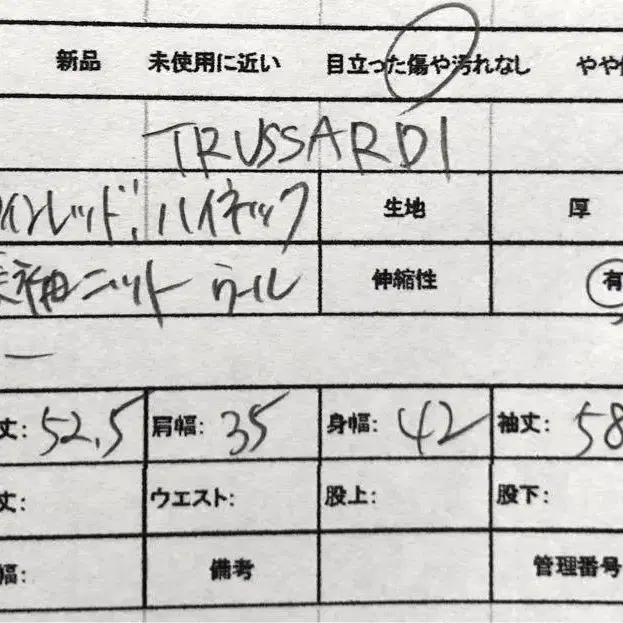 新品 未使用に近い 目立った傷や汚れなし やや
TRUSSARDI
インレッド、ハイネック 生地 厚
長袖ニット ウール 伸縮性 有
丈: 52.5 肩幅: 35 身幅: 42 袖丈: 58
丈: ウエスト: 股上: 股下:
幅: 備考 管理番号